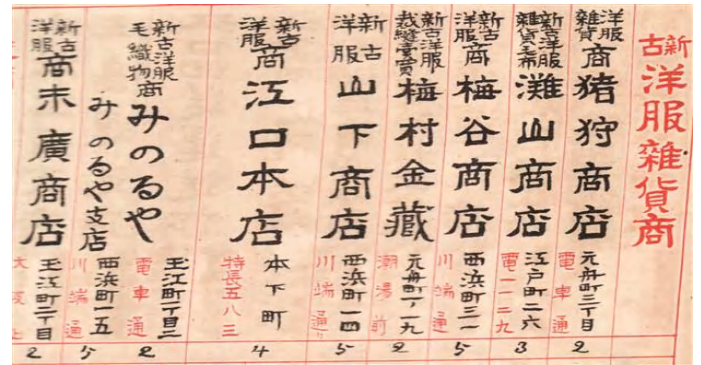 新古洋服雜貨商
洋服雜貨商
猪狩商店
元舟町三丁目
電車通
2
新古洋服
雜貨毛布
灘山商店
江戸町二六
電一一二九
3
新古洋服商
梅谷商店
西浜町三一
川端通
5
新古洋服
裁縫賣買
梅村金藏
元舟町一ノ一九
潮湯前
2
新古洋服
山下商店
西浜町一四
川端通リ
5
新古洋服商
江口本店
本下町
特長五八三
4
新古洋服
毛織物商
みのるや
玉江町一丁目三
電車通
2
みのるや支店
西浜町一五
川端通
5
新古洋服商
末廣商店
玉江町二丁目
大波止
2